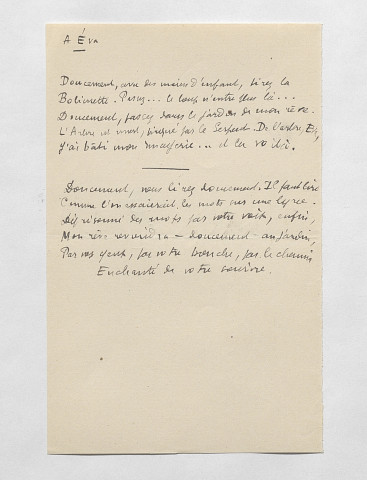 A Éva
Doucement, avec des mains d'enfant, tirez la
Bobinette. Passez... le loup n'entre plus là...
Doucement, passez dans le jardin de mon rêve.
L'Arbre est mort, par le Serpent. De l'arbre, Ève,
J'ai bâti mon ... et la voilà.
Doucement, vous lirez doucement. Il faut lire
Comme l'on essaierait les mots sur une lyre.
des mots par votre voix, enfin,
Mon rêve reviendra — doucement — au jardin,
Par vos yeux, par votre bouche, par le chemin
Enchanté de votre sourire.